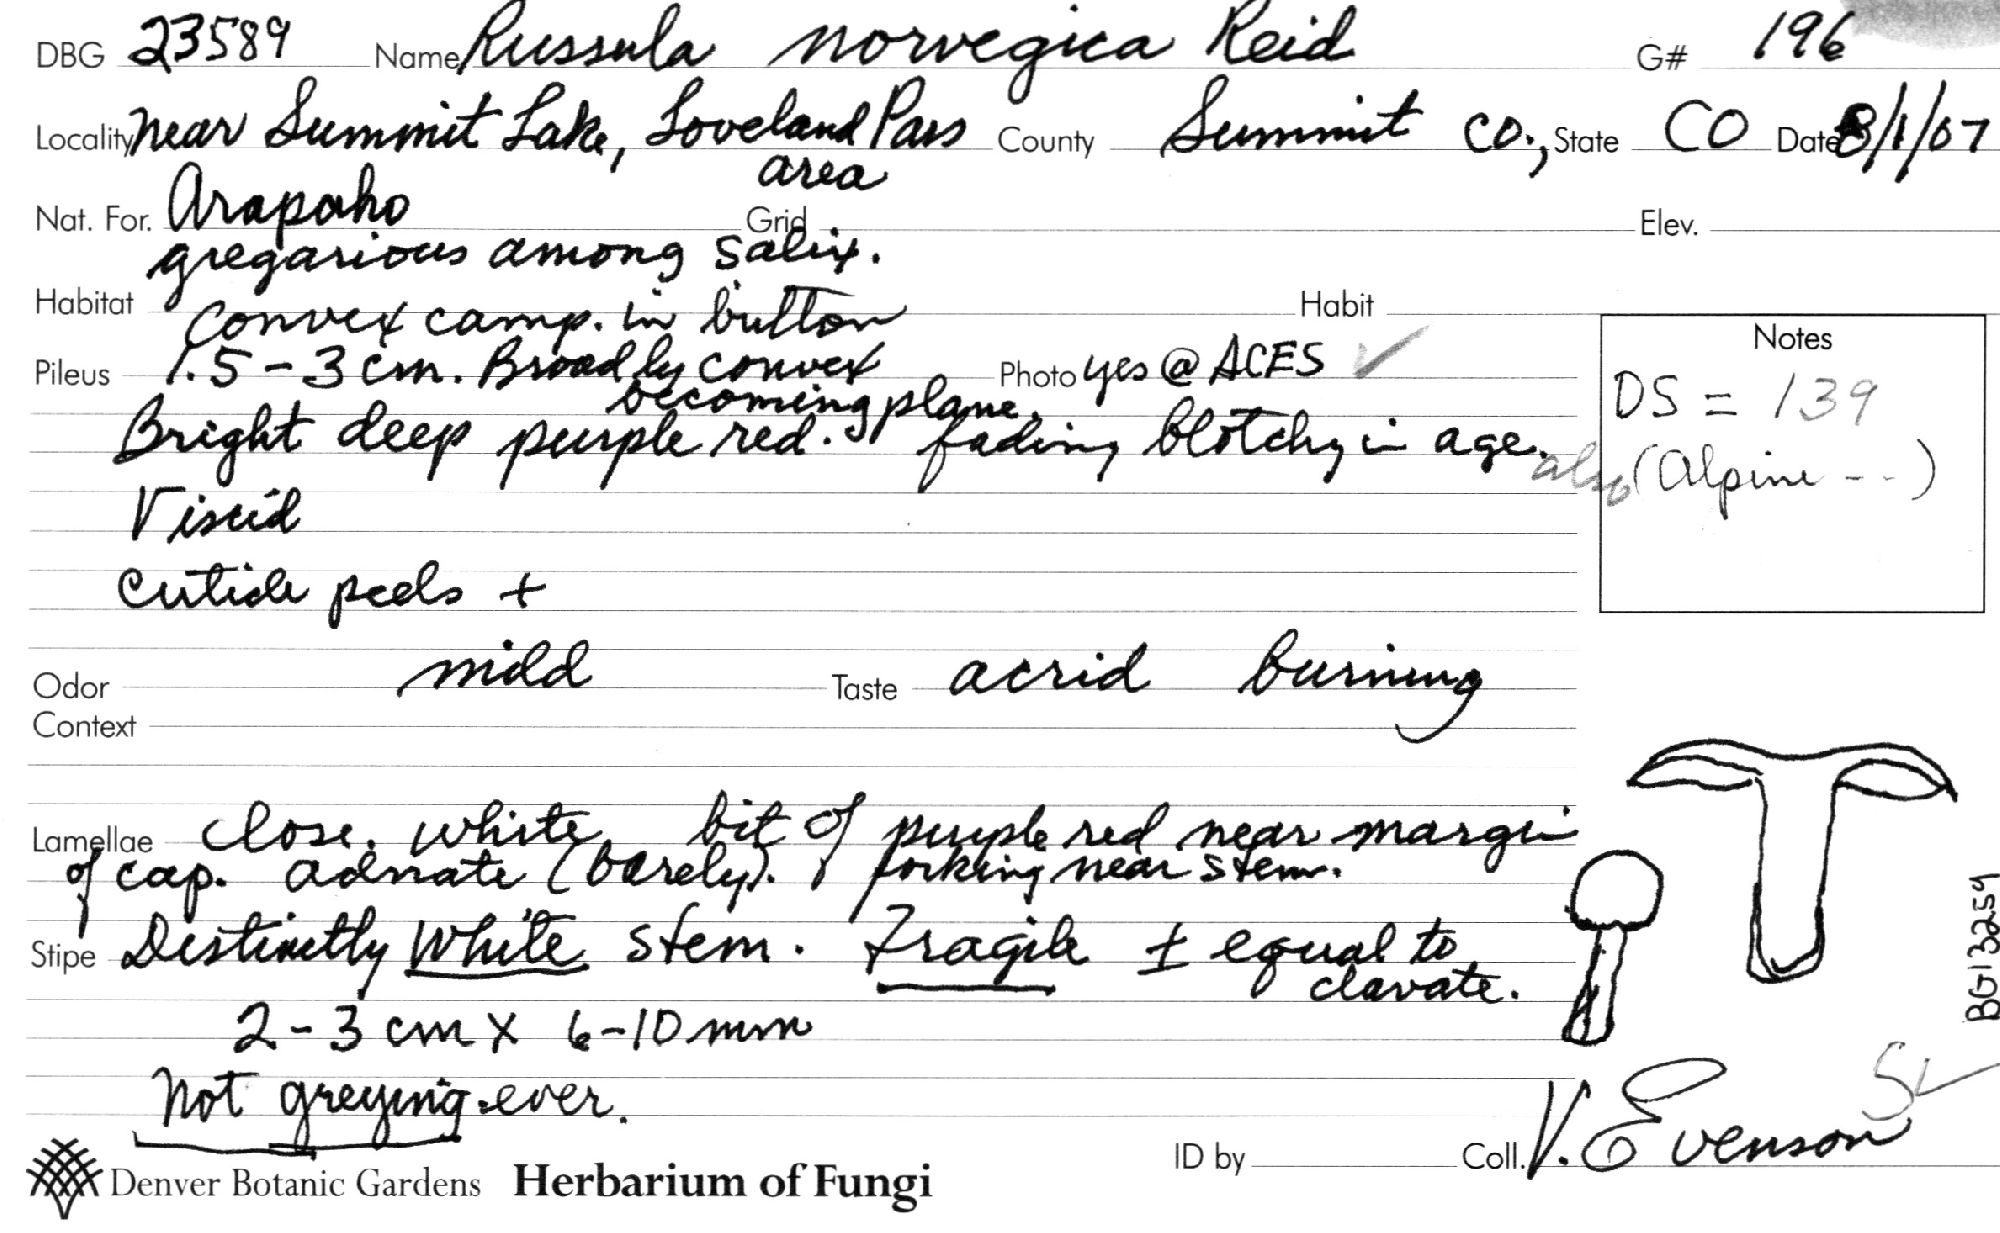 DBG 23589 Name Russula norvegica Reid G# 196
Locality near Summit Lake, Loveland Pass County Summit Co., State CO Date 8/1/07
area
Nat. For. Arapaho Grid Elev.
gregarious among Salix.
Habitat Habit
convex camp. in button
Pileus 1.5-3 cm. Broadly convex Photo yes @ ACES ✓
becoming plane.
Bright deep purple red. fading blotchy in age.
Viscid
cuticle peels +
Notes
DS = 139
also (Alpine --)
Odor mild Taste acrid burning
Context
Lamellae close. white. bit of purple red near margin
of cap. adnate (barely). forking near stem.
Stipe Distinctly white stem. Fragile ± equal to
clavate.
2-3 cm X 6-10 mm
Not greying-ever.
ID by Coll. V. Evenson
Denver Botanic Gardens Herbarium of Fungi
BG13259